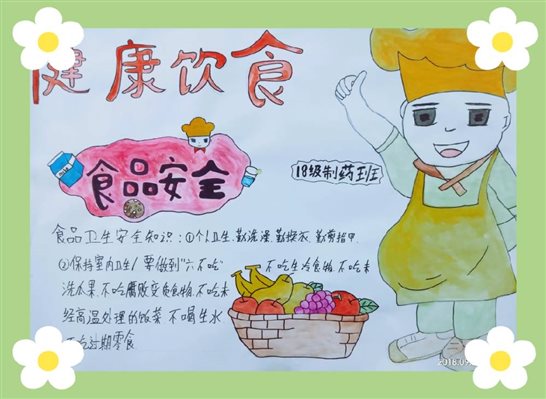 健康饮食
食品安全
18级制药班
食品卫生安全知识：①个人卫生.勤洗澡.勤换衣.勤剪指甲.
②保持室内卫生/要做到"六不吃" 不吃生冷食物.不吃未
洗瓜果.不吃腐败变质食物.不吃未
经高温处理的饭菜 不喝生水
不吃过期零食